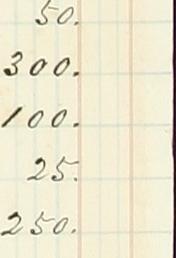 50.
300.
100.
25.
250.